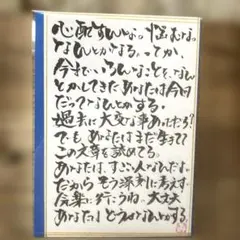 心配すんな。悩むな。
なんとかなる。ってか、
今まで、いろんなことを、なん
とかしてきたあなたは今日
だってなんとかする。
過去に大変な事あったろ？
でも、あなたはまだ生きてて
この文章を読めてる。
あなたは、すごい人なんだな。
だから もう深刻に考えず
気楽に行こうね。大丈夫
あなたは どうにかなんとかする。